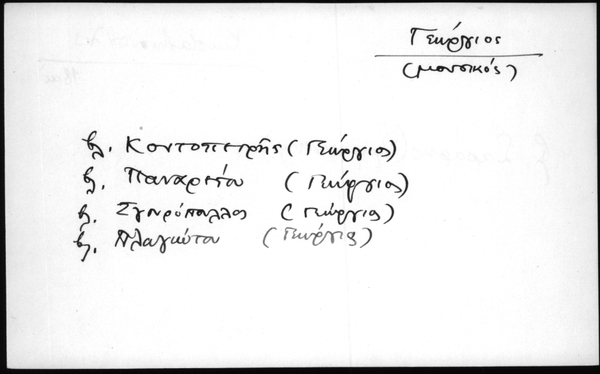 Γεώργιος
(μουσικός)
βλ. Κοντοπετρῆς (Γεώργιος)
βλ. Παναρέτου (Γεώργιος)
βλ. Σγουρόπουλος (Γεώργιος)
βλ. Πλαγιώτου (Γεώργιος)